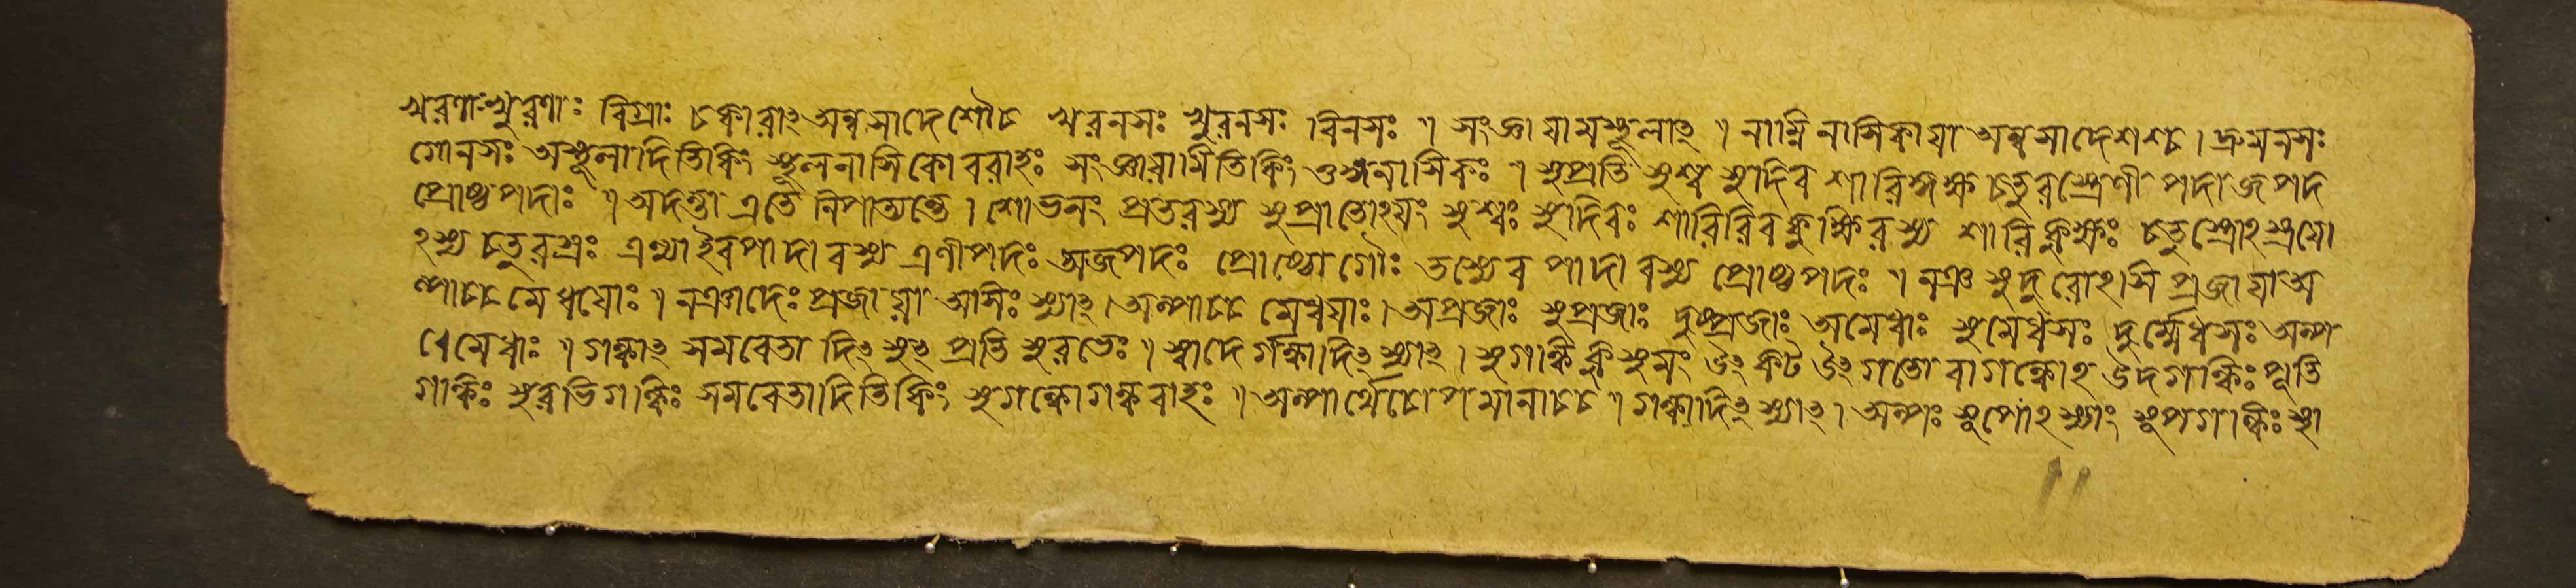 খরণাঃ খুরণাঃ বিগ্রাঃ চকারাৎ অন্ত্বসাদেশৌচ খরনসঃ খুরনসঃ বিনসঃ ৷৷ সংজ্ঞাযামস্থূলাৎ ৷ নাম্নি নাসিকাযা অন্ত্বসাদেশশ্চ ৷ দ্রুমনসঃ
গোনসঃ অস্থূলাদিতিকিং স্থূলনাসিকোবরাহঃ সংজ্ঞাযামিতিকিং তুঙ্গনাসিকঃ ৷৷ সুপ্রাত সুশ্ব সুদিব শারিকুক্ষ চতুরস্রৈণী পদাজপদ
প্রোষ্ঠপদাঃ ৷৷ অদন্তা এতে নিপাত্যন্তে ৷ শোভনং প্রাতরস্য সুপ্রাতোঽযং সুশ্বঃ সুদিবঃ শারিরিবকুক্ষিরস্য শারিকুক্ষঃ চতস্রোঽস্রযো
ঽস্য চতুরস্রঃ এণ্যাইবপাদাবস্য এণীপদঃ অজপদঃ প্রোষ্ঠোগৌঃ তস্যেব পাদাবস্য প্রোষ্ঠপদঃ ৷৷ নঞ সুদুরোঽসি প্রজাযাঅ
ল্পাচ্চ মেধযোঃ ৷৷ নঞাদেঃ প্রজাযা অসিঃ স্যাৎ ৷ অল্পাচ্চ মেধাযাঃ ৷ অপ্রজাঃ সুপ্রজাঃ দুষ্প্রজাঃ অমেধাঃ সুমেধসঃ দুর্ম্মেধসঃ অল্প
মেধাঃ ৷৷ গন্ধাৎ সমবেতা দিৎ সুৎ প্রতি সুরভেঃ ৷৷ স্বাদের্গন্ধাদিৎ স্যাৎ ৷ সুগন্ধি কুসুমং উৎকট উৎগতোবাগন্ধোঽ উদগন্ধিঃ পূতি
গন্ধিঃ সুরভিগন্ধিঃ সমবেতাদিতিকিং সুগন্ধোগন্ধবাহঃ ৷৷ অল্পার্থেচোপমানাচ্চ ৷৷ গন্ধাদিৎ স্যাৎ ৷ অল্পঃ সূপোঽস্যাং সূপগন্ধিঃ স্থা